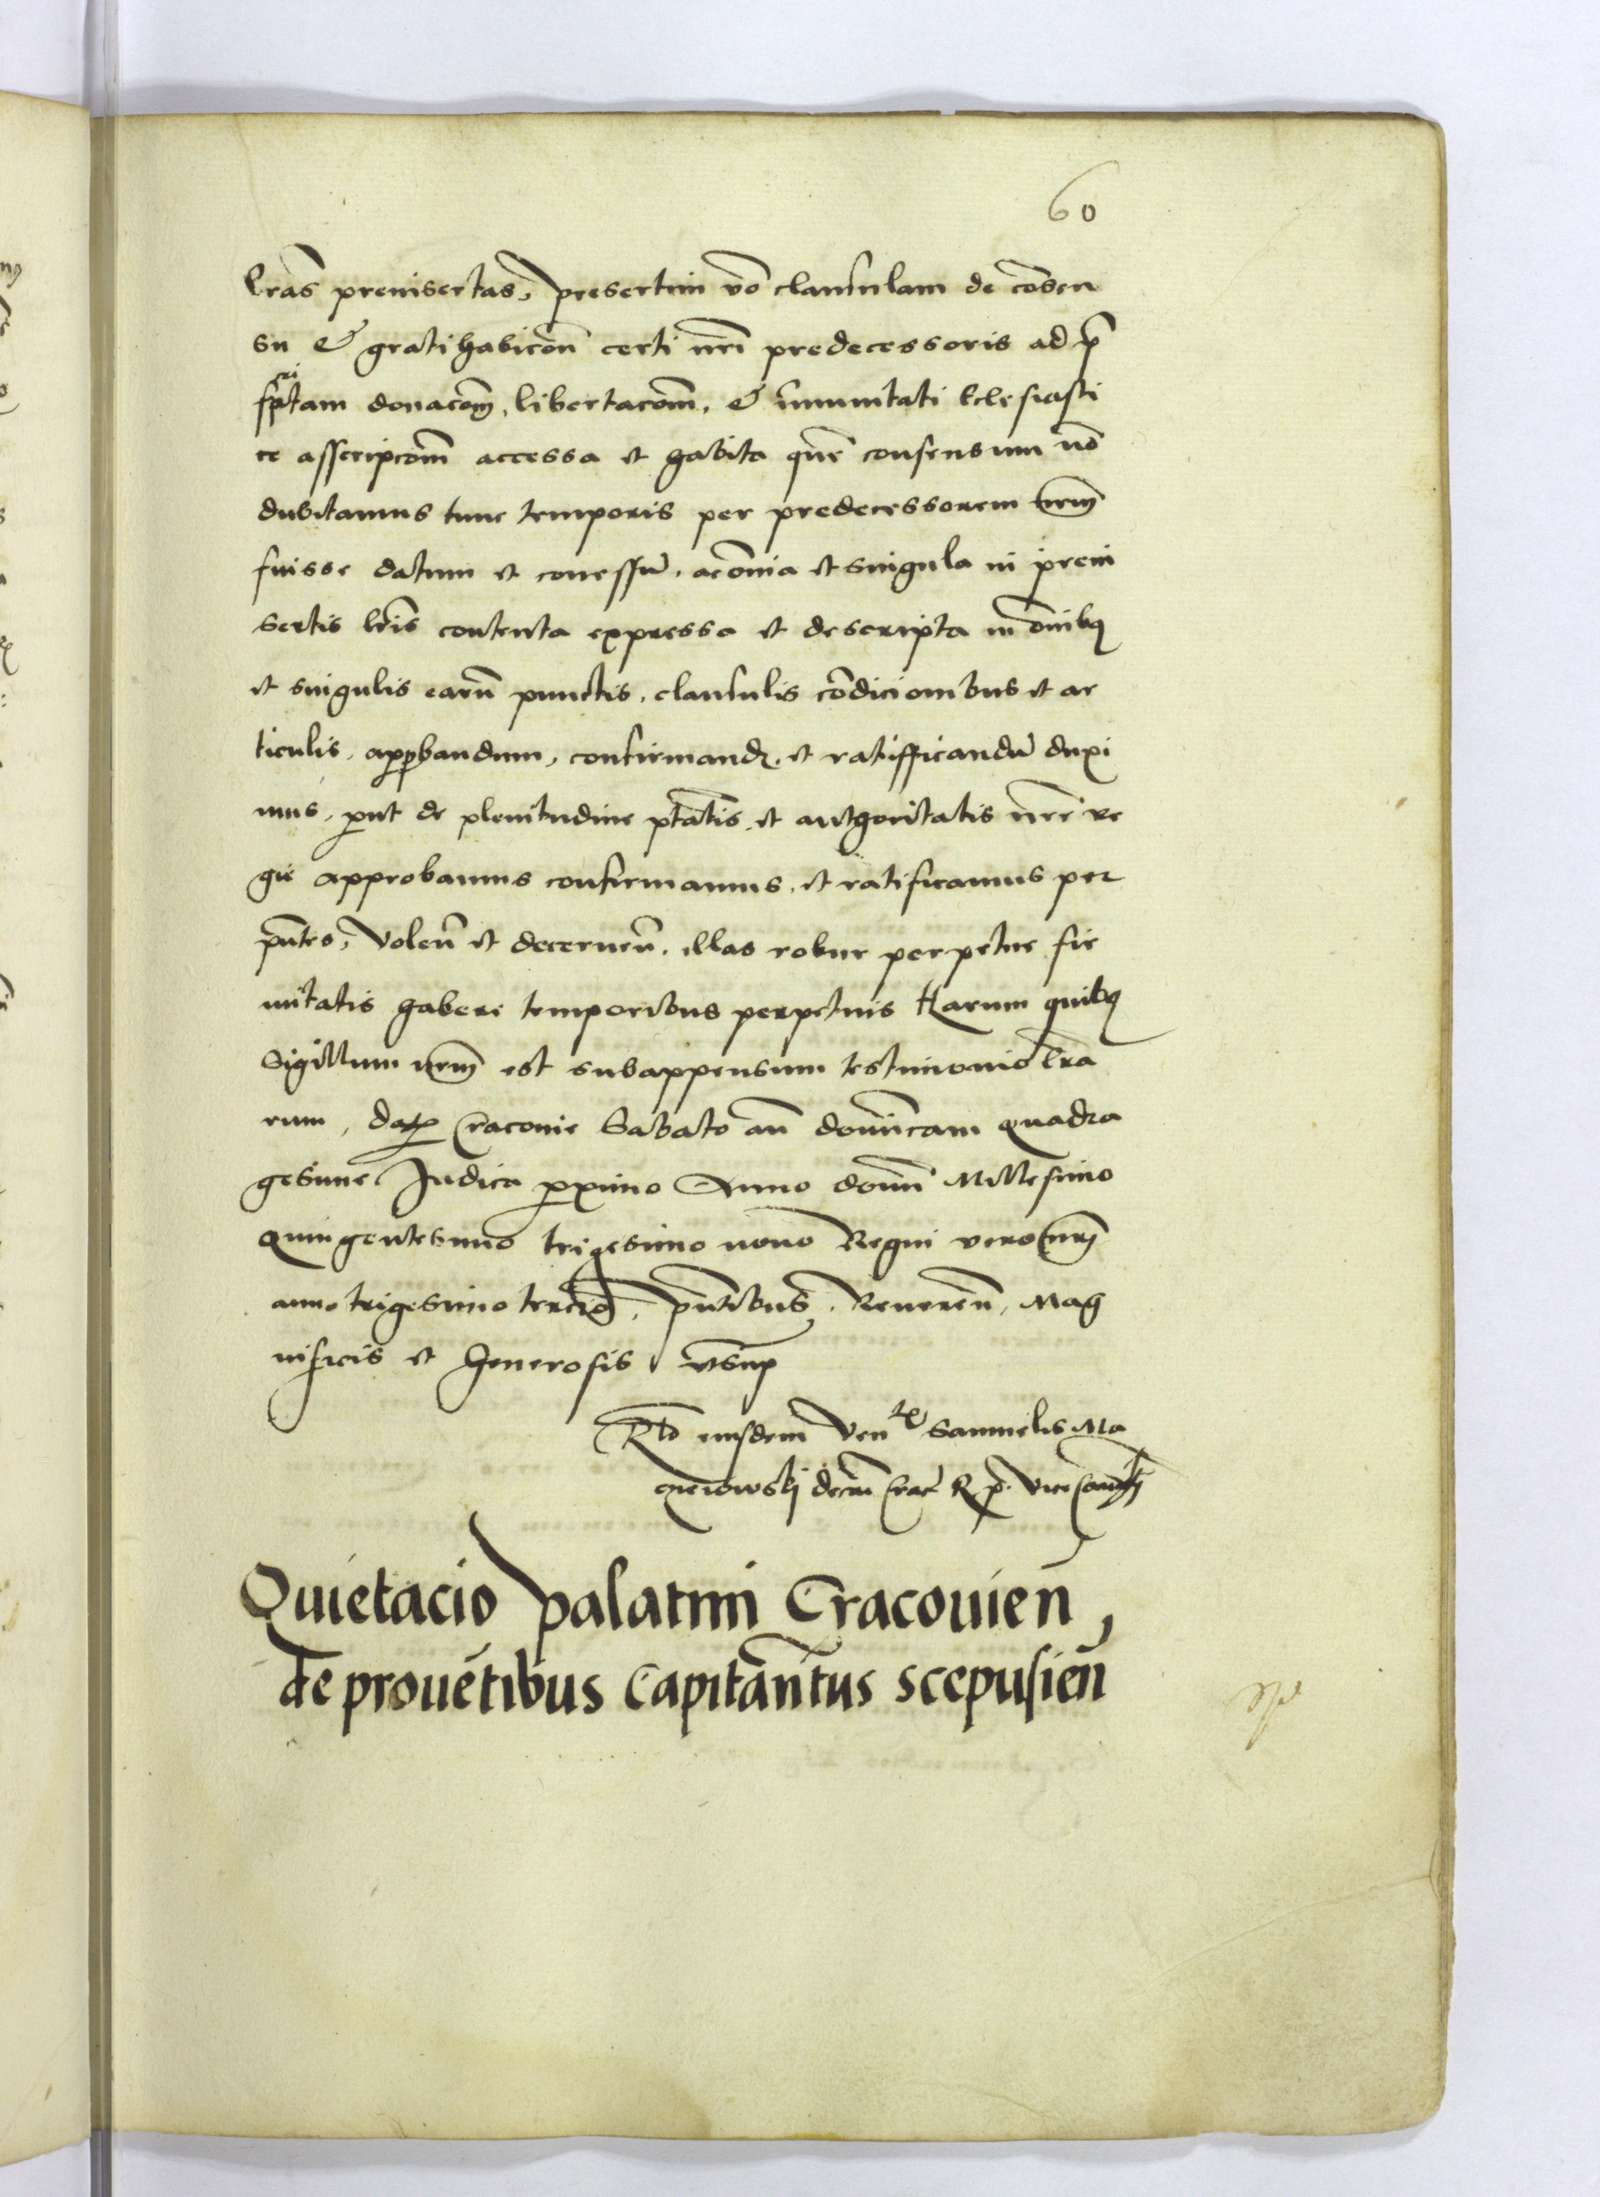 60
lr̄as preinsertas, presertim vō clausulam de cōsen
su & gratihabicōn certi nr̄i predecessoris ad p̄
scriptam donacōm, libertacōm, & īmunitati Eclesiasti
ce asscripcōm accessa et habita quē consensum nō
dubitamus tunc temporis per predecessorem nr̄m
fuisse datum et concessū. ac ōnia et singula in prein
sertis lr̄is contenta expressa et descripta in ōnibq
et singulis earū punctis. clausulis cōdicionibus et ar
ticulis. approbandum, confirmand. et ratifficandū duxi
mus, put de plenitudine ptātis. et authoritatis nr̄e re
gie approbamus confirmamus. et ratificamus per
pn̄tes, Volen̄ et decernen̄. illas robur perpetue fir
mitatis habere temporibus perpetuis Harum quibq
Sigillum nr̄m est subappensum testimonio lr̄a
rum, dat Cracovie Sabato an̄ domīcam quadra
gesime Judica pximo Anno domī Millesimo
Quingentesimo trigesimo nono Regni vero nr̄i
anno trigesimo tercio, pn̄tibus, Reueren̄, Mag
nificis et Generosis vt sup
Rtō eiusdem Ven Samuelis Ma
czieiowskj decāi Crac̄ R. p. Vice Cancellˀ
Quietacio palatini Cracouien̄,
de prouētibus Capitanātus scepusien̄